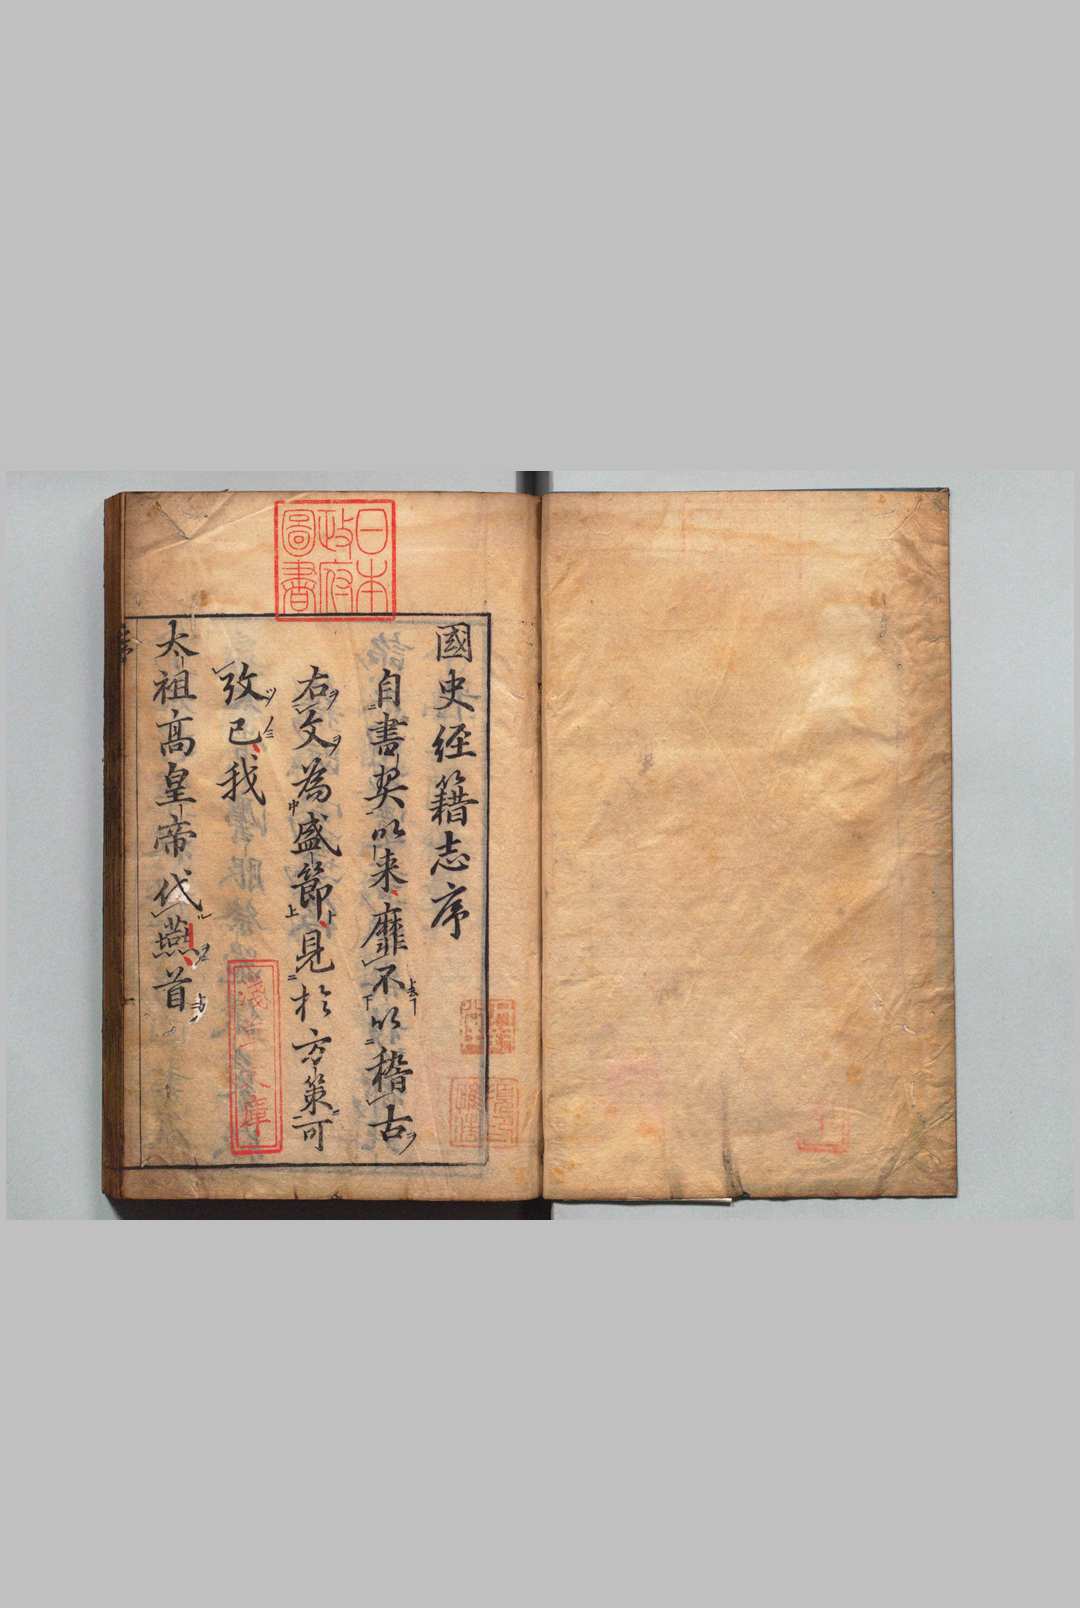 國史經籍志序
自書契以来靡不以稽古
右文為盛節見於方策可
攷已我
太祖高皇帝代燕首
日本
政府
圖書
淺草文庫